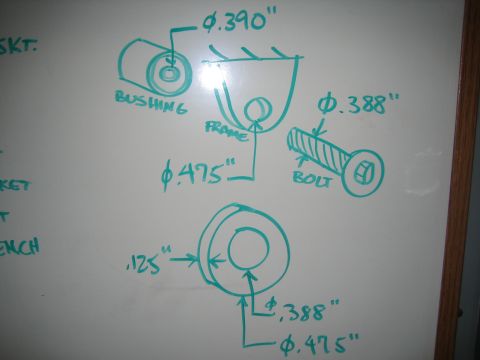 φ.390"
SKT.
BUSHING
φ.388"
FRAME
φ.475"
BOLT
.125"
φ.388"
φ.475"